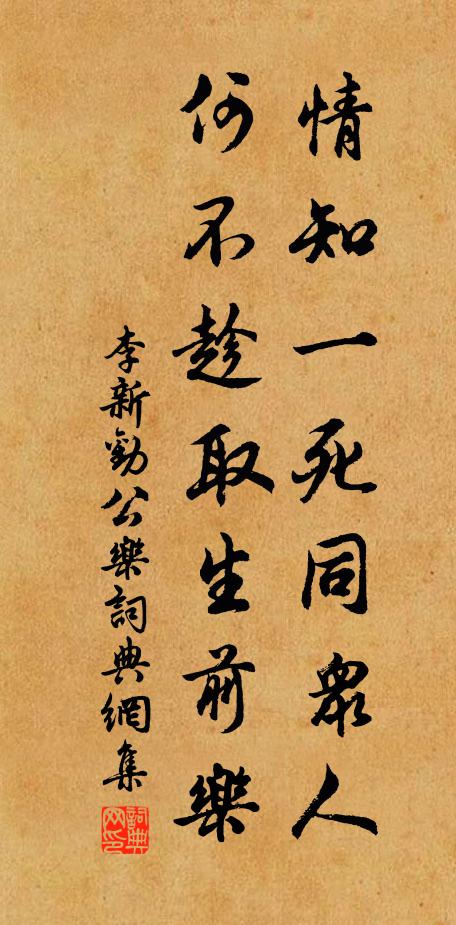 情知一死同眾人
何不趁取生前樂
李新勸公樂詞典網集
詞典网印